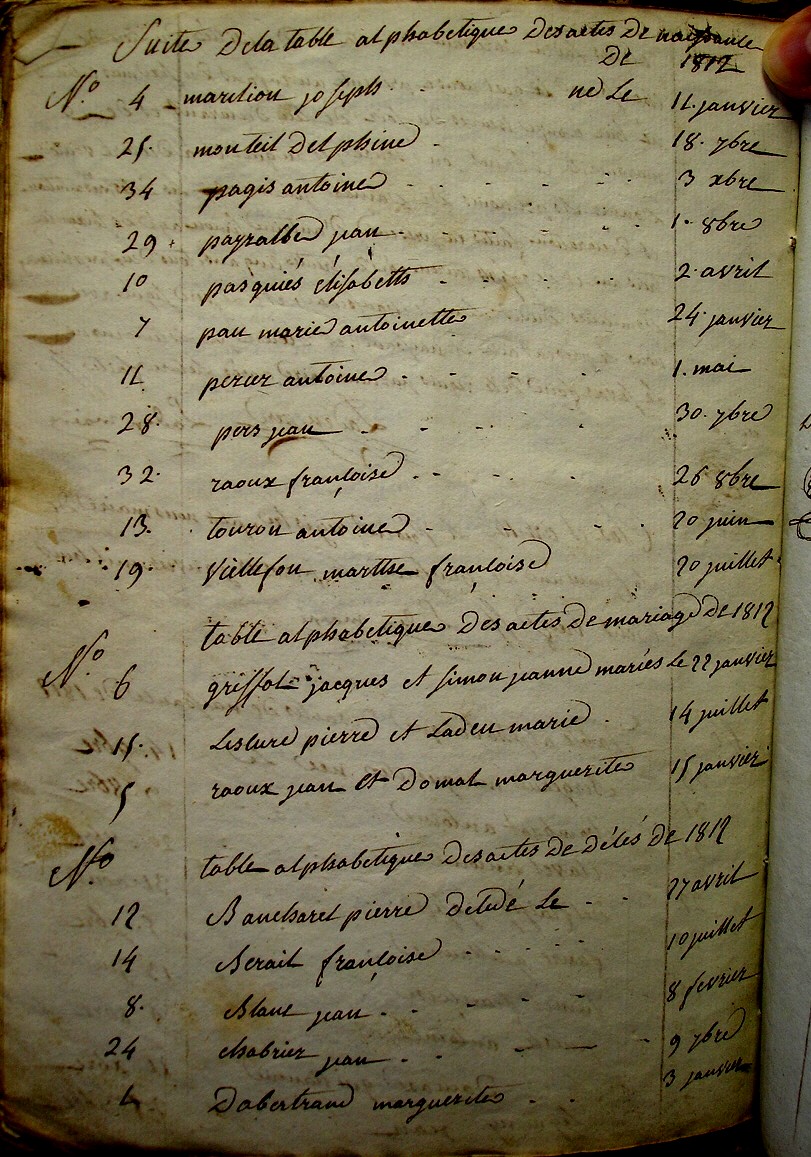 Suite De la table alphabetique Des actes De naissance
De 1812
N.o 4 marcilion joseph né Le 11. janvier
25. monteil Delphine 18. 7bre
34 pagis antoine 3 xbre
29. payralbe jean 1. 8bre
10 pasquiés élisabeth 2. avril
7 pau marie antoinette 24. janvier
11 perier antoine 1. mai
28. pers jean 30. 7bre
32. raoux françoise 26 8bre
13. touron antoine 20 juin
19. Vieillefon marthe françoise 20 juillet
table alphabetique Des actes De mariage De 1812
N.o 6 griffol jacques et simon jeanne mariés Le 22 janvier
15. Lescure pierre et Ladeu marie 14 juillet
5 raoux jean et Domal marguerite 15 janvier
N.o table alphabetique Des actes De décés De 1812
12 Bancharel pierre décédé Le 27 avril
14 Berail françoise 10 juillet
8. Blanc jean 8 fevrier
24 chabrier jean 9 7bre
Dabertrand marguerite 3 janvier